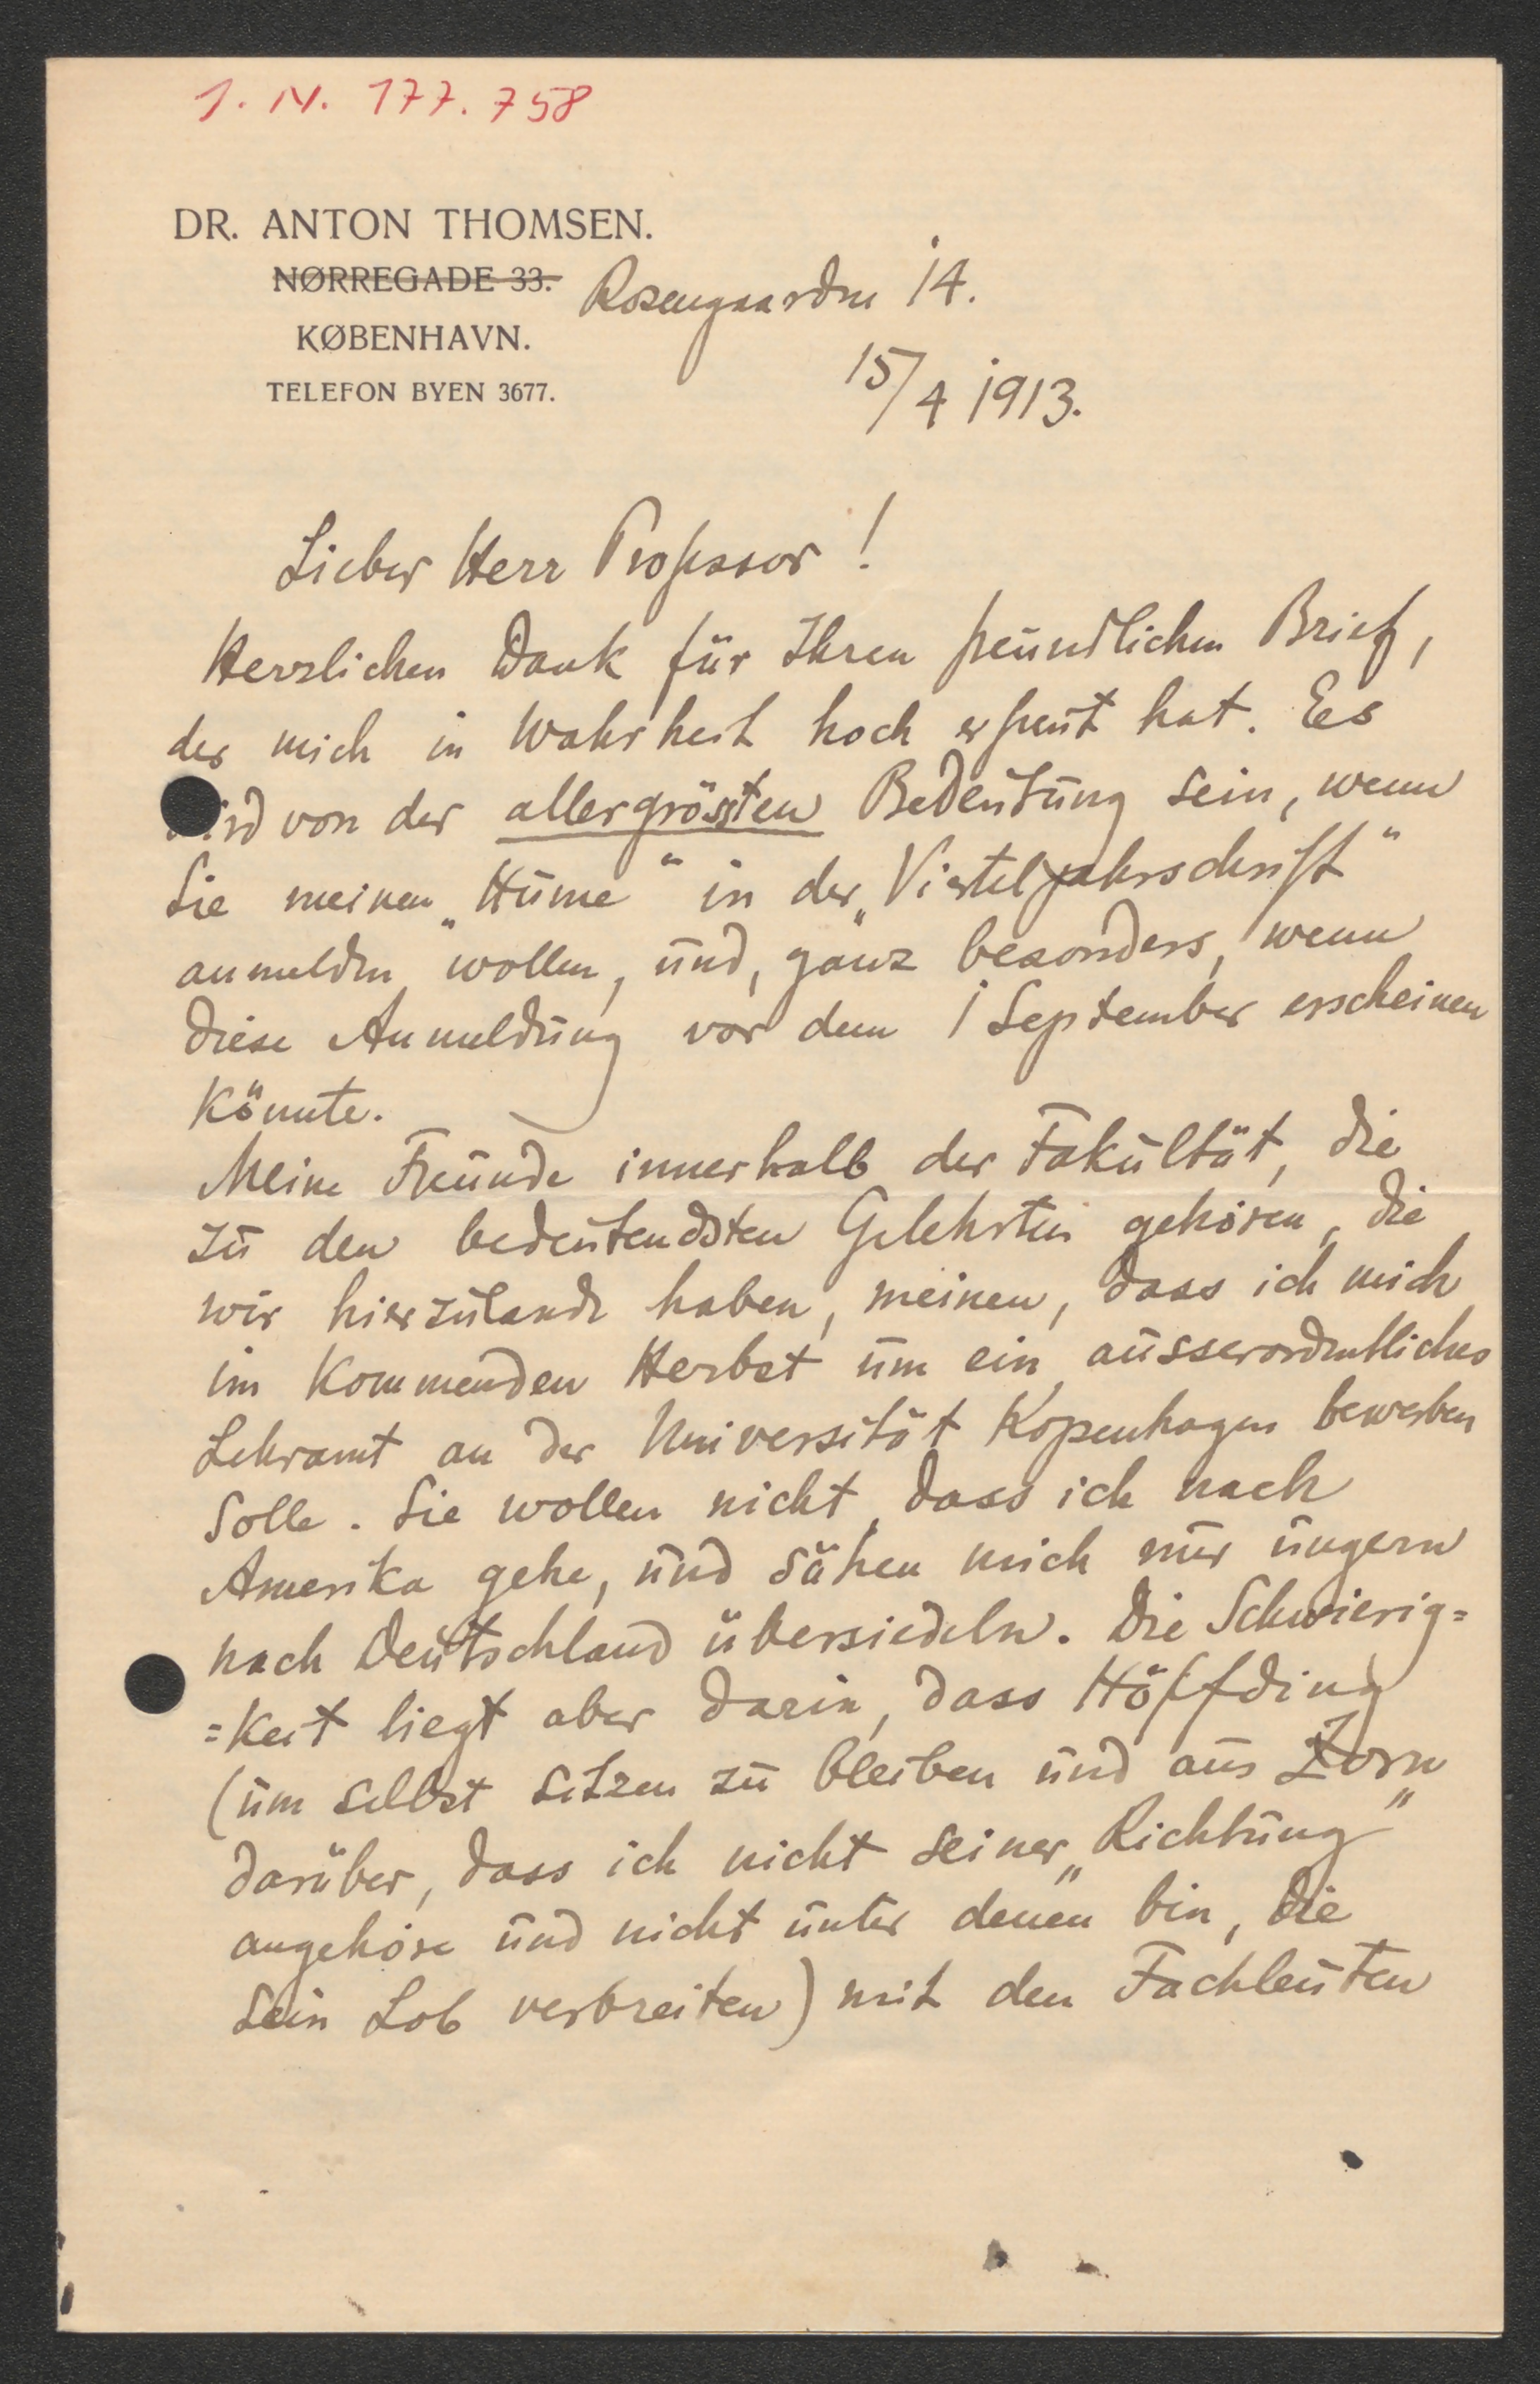 I. N. 177.758
DR. ANTON THOMSEN.
NØRREGADE 33. Rosengaarden 14.
KØBENHAVN.
TELEFON BYEN 3677.
15/4 1913.
Lieber Herr Professor!
Herzlichen Dank für Ihren freundlichen Brief,
der mich in Wahrheit hoch erfreut hat. Es
wird von der allergrössten Bedeutung sein, wenn
Sie meinen „Hume“ in der „Vierteljahrschrift“
anmelden wollen, und, ganz besonders, wenn
diese Anmeldung vor dem 1 September erscheinen
könnte.
Meine Freunde innerhalb der Fakultät, die
zu den bedeutendsten Gelehrten gehören, die
wir hierzulande haben, meinen, dass ich mich
im kommenden Herbst um ein ausserordentliches
Lehramt an der Universität Kopenhagen bewerben
solle. Sie wollen nicht, dass ich nach
Amerika gehe, und sähen mich nur ungern
nach Deutschland übersiedeln. Die Schwierig=
=keit liegt aber darin, dass Höffding
(um selbst sitzen zu bleiben und aus Zorn
darüber, dass ich nicht seiner „Richtung“
angehöre und nicht unter denen bin, die
sein Lob verbreiten) mit den Fachleuten